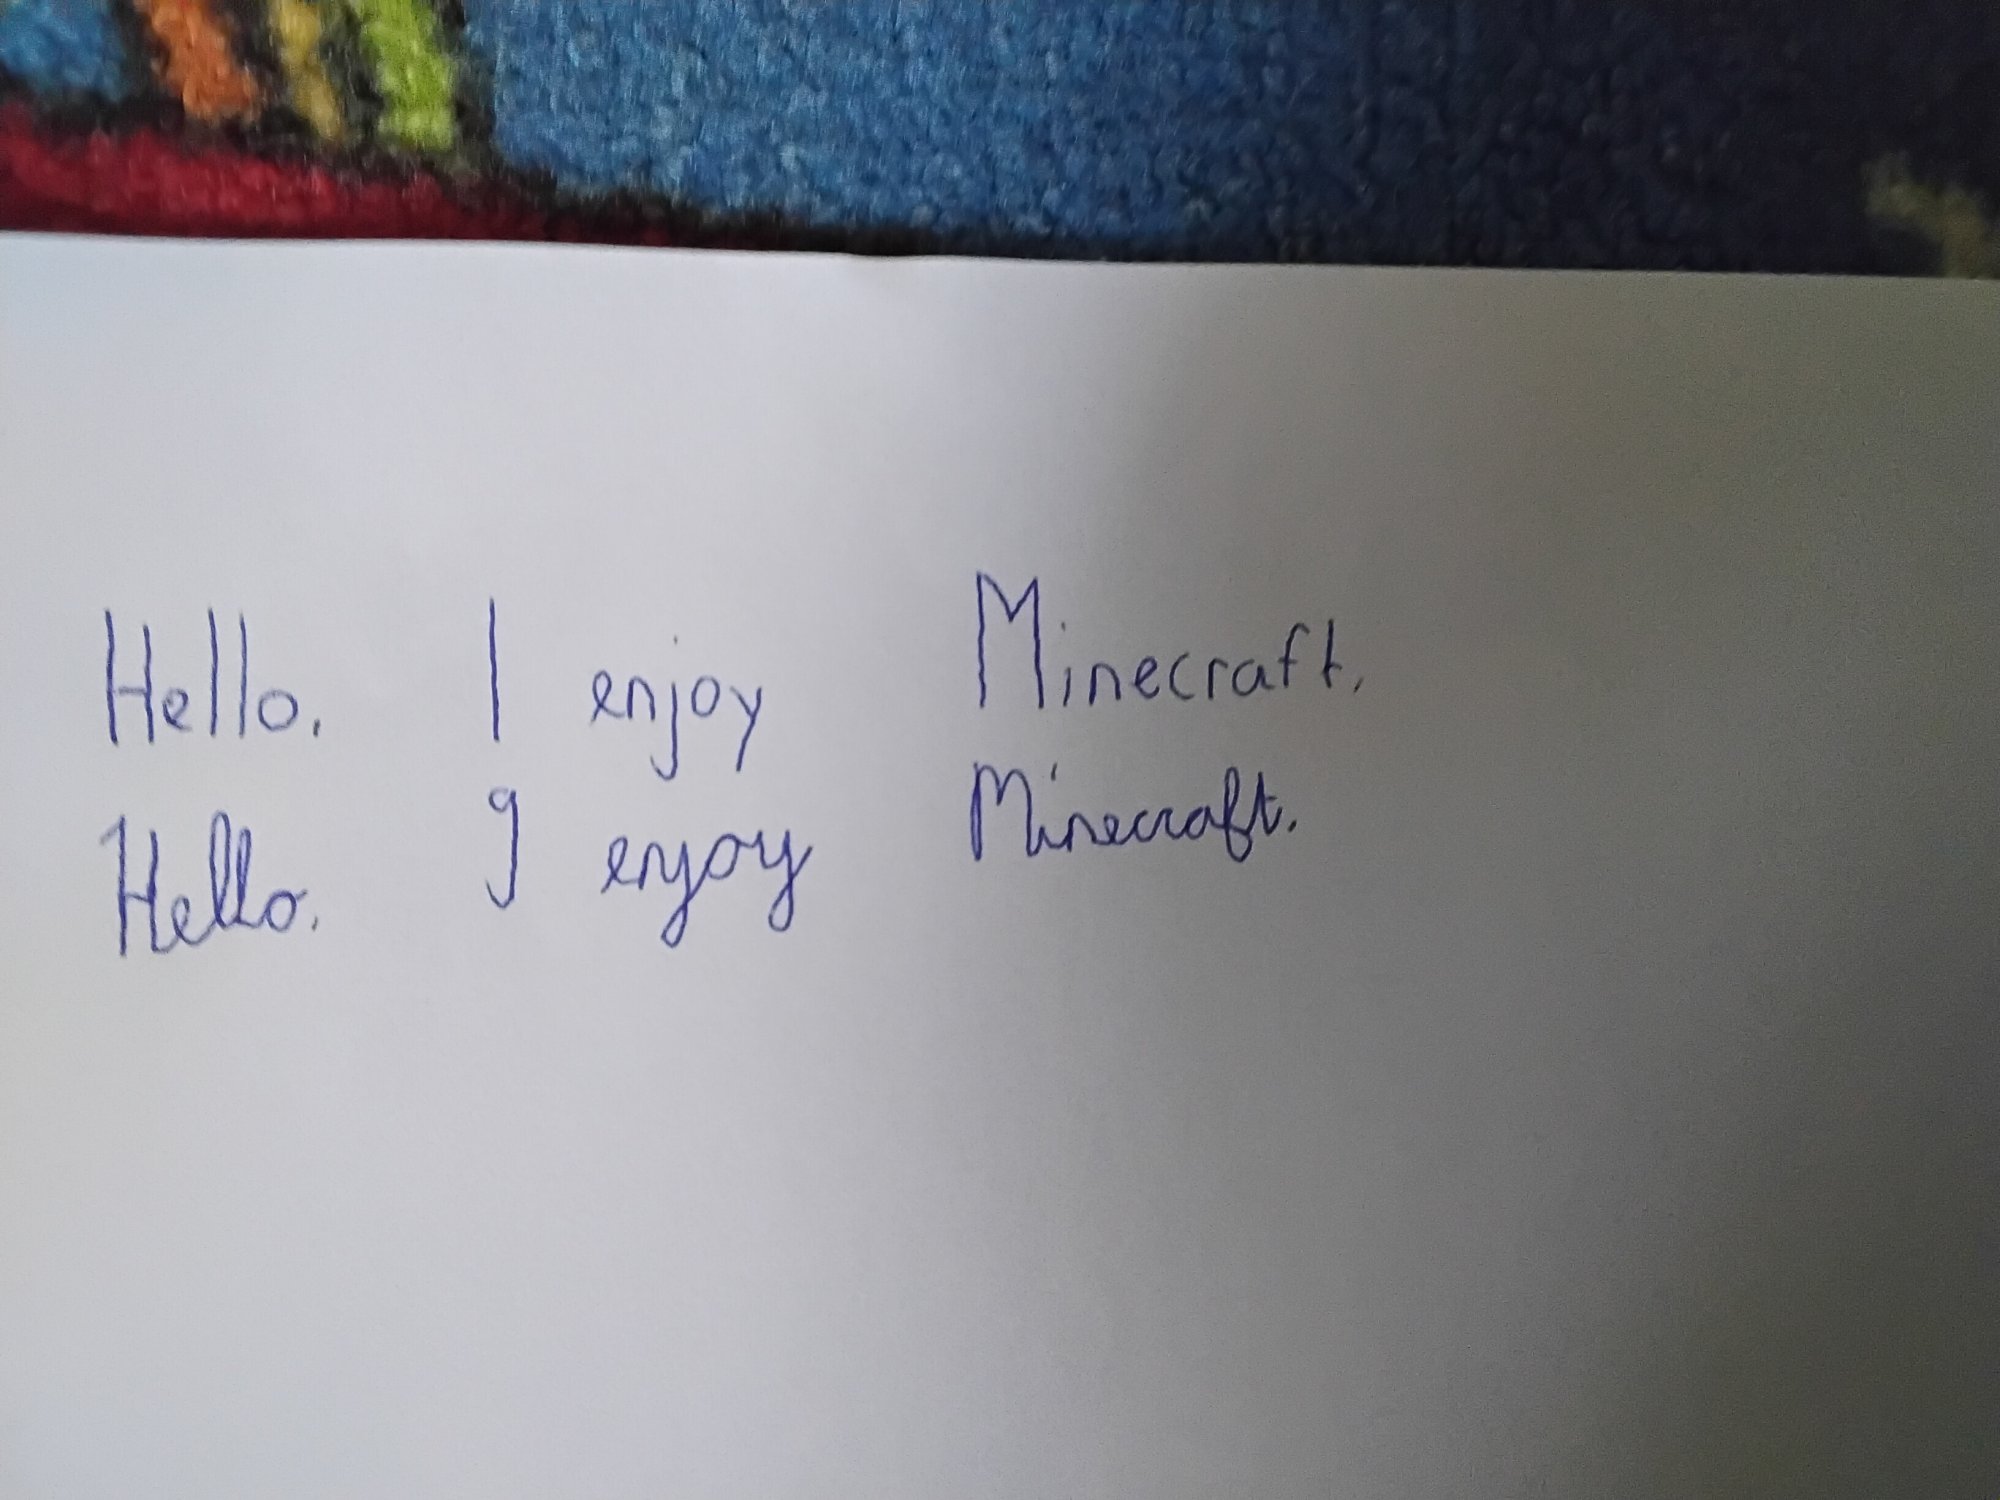 Hello. I enjoy Minecraft.
Hello. I enjoy Minecraft.